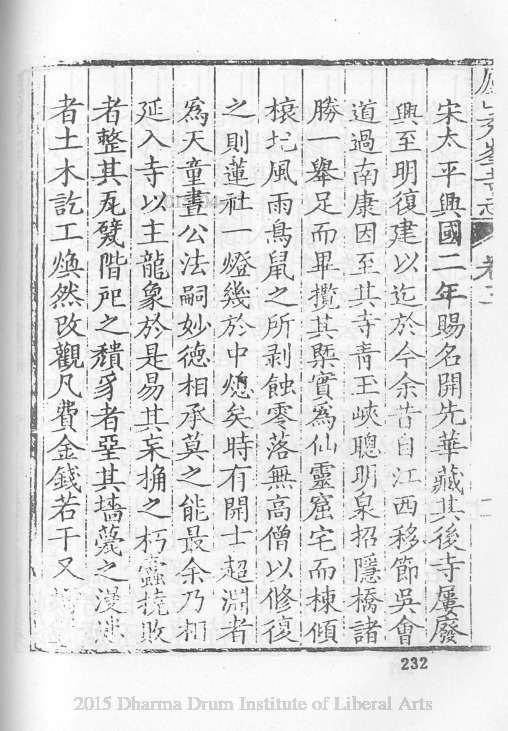 宋太平興國二年賜名開先華藏其後寺屢廢
興至明復建以迄於今余昔自江西移節吳會
道過南康因至其寺青玉峽聰明泉招隱橋諸
勝一舉足而畢攬其槩實為仙靈窟宅而棟傾
榱圮風雨鳥鼠之所剥蝕零落無高僧以修復
之則蓮社一燈幾於中熄矣時有開士超淵者
為天童晝公法嗣妙德相承莫之能最余乃招
延入寺以主龍象於是易其宋桷之朽蠹撓敗
者整其瓦甓階戺之穨豸者堊其墻薨之漫漶
者土木訖工煥然改觀凡費金錢若干又
卷二
232
2015 Dharma Drum Institute of Liberal Arts